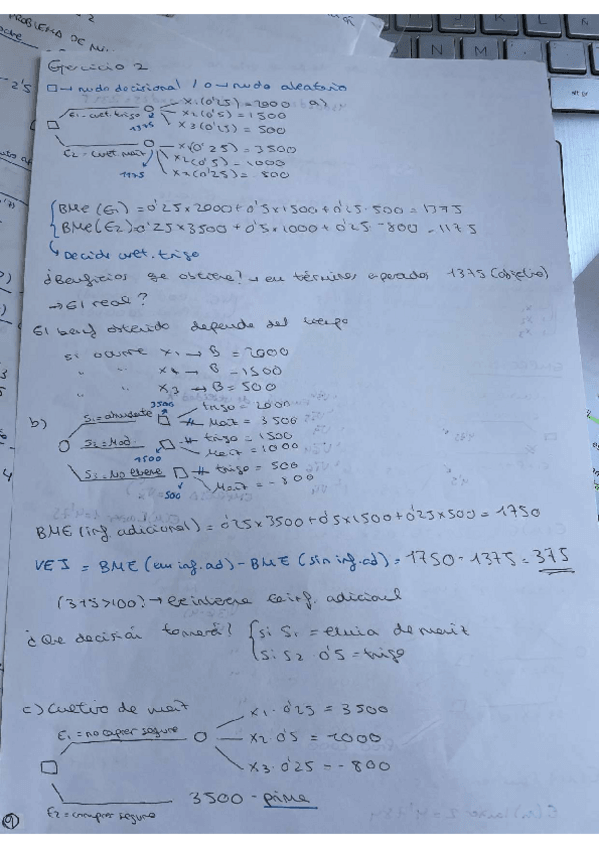 Ejercicio 2
□→ nudo decisional / o→ nudo aleatorio
E1=cult.trigo 1375 x1(0'25)=2000 a)
x2(0'5)=1500
x3(0'25)=500
E2=cult.mait 1175 x1(0'25)=3500
x2(0'5)=1000
x3(0'25)=-800
BME(E1)=0'25x2000+0'5x1500+0'25·500=1375
BME(E2)=0'25x3500+0'5x1000+0'25·-800=1175
↳Decide cult.trigo
¿Beneficios se obtiene?→ en términos esperados 1375 (objetivo)
→El real?
El benf obtenido depende del tiempo
si ocurre x1→B=2000
" " x2→B=1500
" " x3→B=500
b) S1=abundante 3500 trigo=2000
# Mait=3500
S2=Mod. 1500 # trigo=1500
Mait=1000
S3=No llueve 500 # trigo=500
Mait=-800
BME(inf.adicional)=0'25x3500+0'5x1500+0'25x500=1750
VEI = BME(con inf.ad)-BME(sin inf.ad)=1750-1375=375
(375>100)→ le interesa la inf. adicional
¿Que decisión tomará? si S1=
si S2·0'5=trigo
c) Cultivo de mait
E1=no comprar seguro x1·0'25=3500
x2·0'5=1000
x3·0'25=-800
E2=comprar seguro 3500-prima